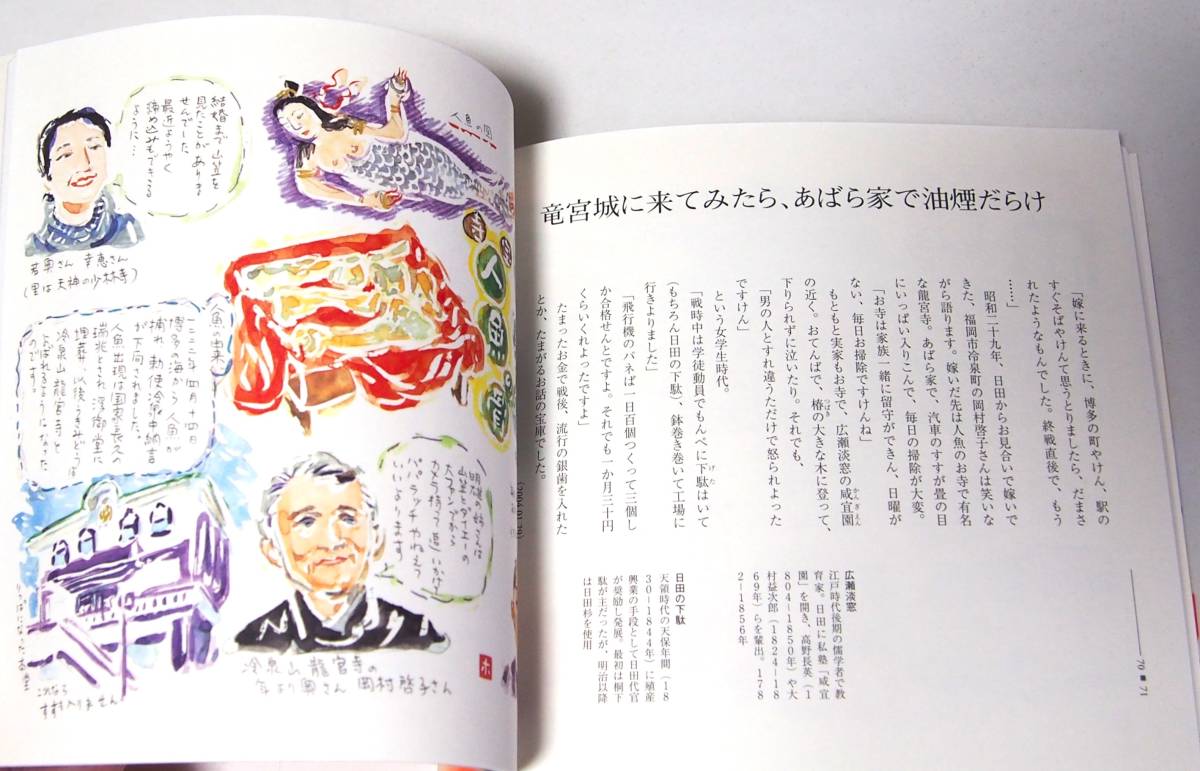 結婚まで山笠を
見たことがありま
せんでした
最近ようやく
締め込みもできる
ように…
若奥さん 幸恵さん
(里は天神の少林寺)
人魚の図
人魚
人魚の由来
一二二二年四月十四日
博多の海から人魚が
捕れ、勅使冷泉中納言
が下向されました。
人魚出現は国家長久の
瑞兆とされ、浮御堂に
埋葬、以後うきみどうは
冷泉山龍宮寺と
よばれるようになった
のです。
冷泉山 龍宮寺の
年より奥さん 岡村啓子さん
ホ
竜宮城に来てみたら、あばら家で油煙だらけ
「嫁に来るときに、博多の町やけん、駅の
すぐそばやけんて思うとりましたら、だまさ
れたようなもんでした。終戦直後で、もう
……」
昭和二十九年、日田からお見合いで嫁いで
きた、福岡市冷泉町の岡村啓子さんは笑いな
がら語ります。嫁いだ先は人魚のお寺で有名
な龍宮寺。あばら家で、汽車のすすが畳の目
にいっぱい入りこんで、毎日の掃除が大変。
「お寺は家族一緒に留守ができん、日曜が
ない、毎日お掃除ですけんね」
もともと実家もお寺で、広瀬淡窓の咸宜園
の近く。おてんばで、椿の大きな木に登って、
下りられずに泣いたり。それでも、
「男の人とすれ違うただけで怒られよった
ですけん」
という女学生時代。
「戦時中は学徒動員でもんぺに下駄はいて
(もちろん日田の下駄)、鉢巻き巻いて工場に
行きよりました」
「飛行機のバネば一日百個つくって三個し
か合格せんとですよ。それでも一か月三十円
くらいくれよったですよ」
たまったお金で戦後、流行の銀歯を入れた
とか、たまがるお話の宝庫でした。
広瀬淡窓
江戸時代後期の儒学者で教
育家。日田に私塾「咸宜
園」を開き、高野長英(1
804―1850年)や大
村益次郎(1824―18
69年)らを輩出。178
2―1856年
日田の下駄
天領時代の天保年間(18
30―1844年)に殖産
興業の手段として日田代官
が奨励し発展。最初は桐下
駄が主だったが、明治以降
は日田杉を使用
70 ■ 71